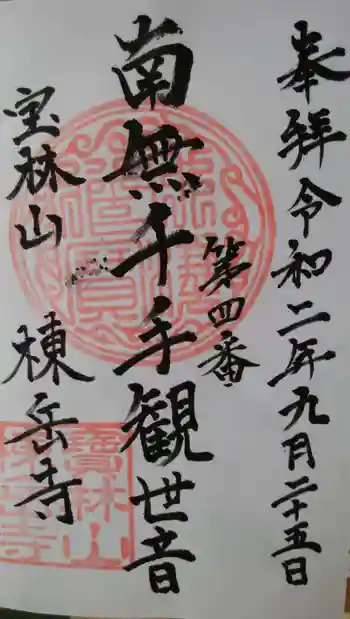 奉拝 令和二年九月二十五日
第四番
南無千手観世音
宝林山 棟岳寺
寶林山
棟岳寺